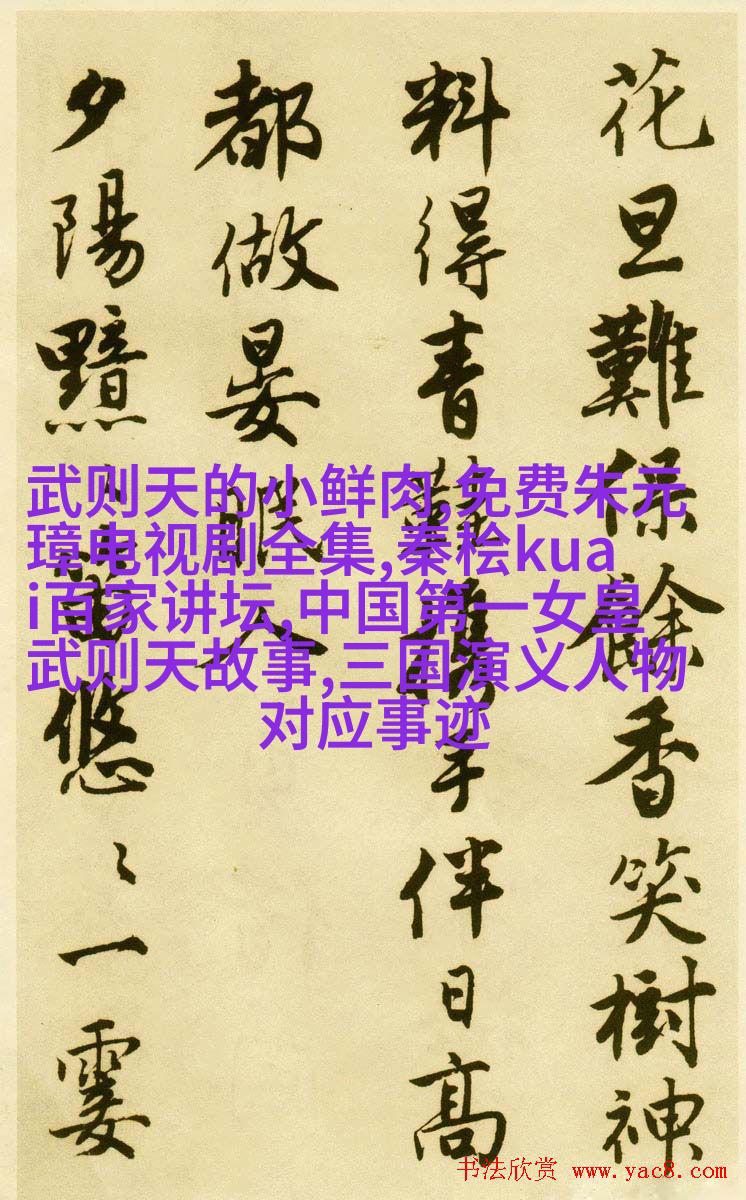 花旦難保餘香笑樹神
料得青鞋携手伴日高
都做晏眠人
夕陽黯〻悠〻一霎
武则天的小鲜肉,免费朱元
璋电视剧全集,秦桧kua
i百家讲坛,中国第一女皇
武则天故事,三国演义人物
对应事迹
书法欣赏 www.yac8.com